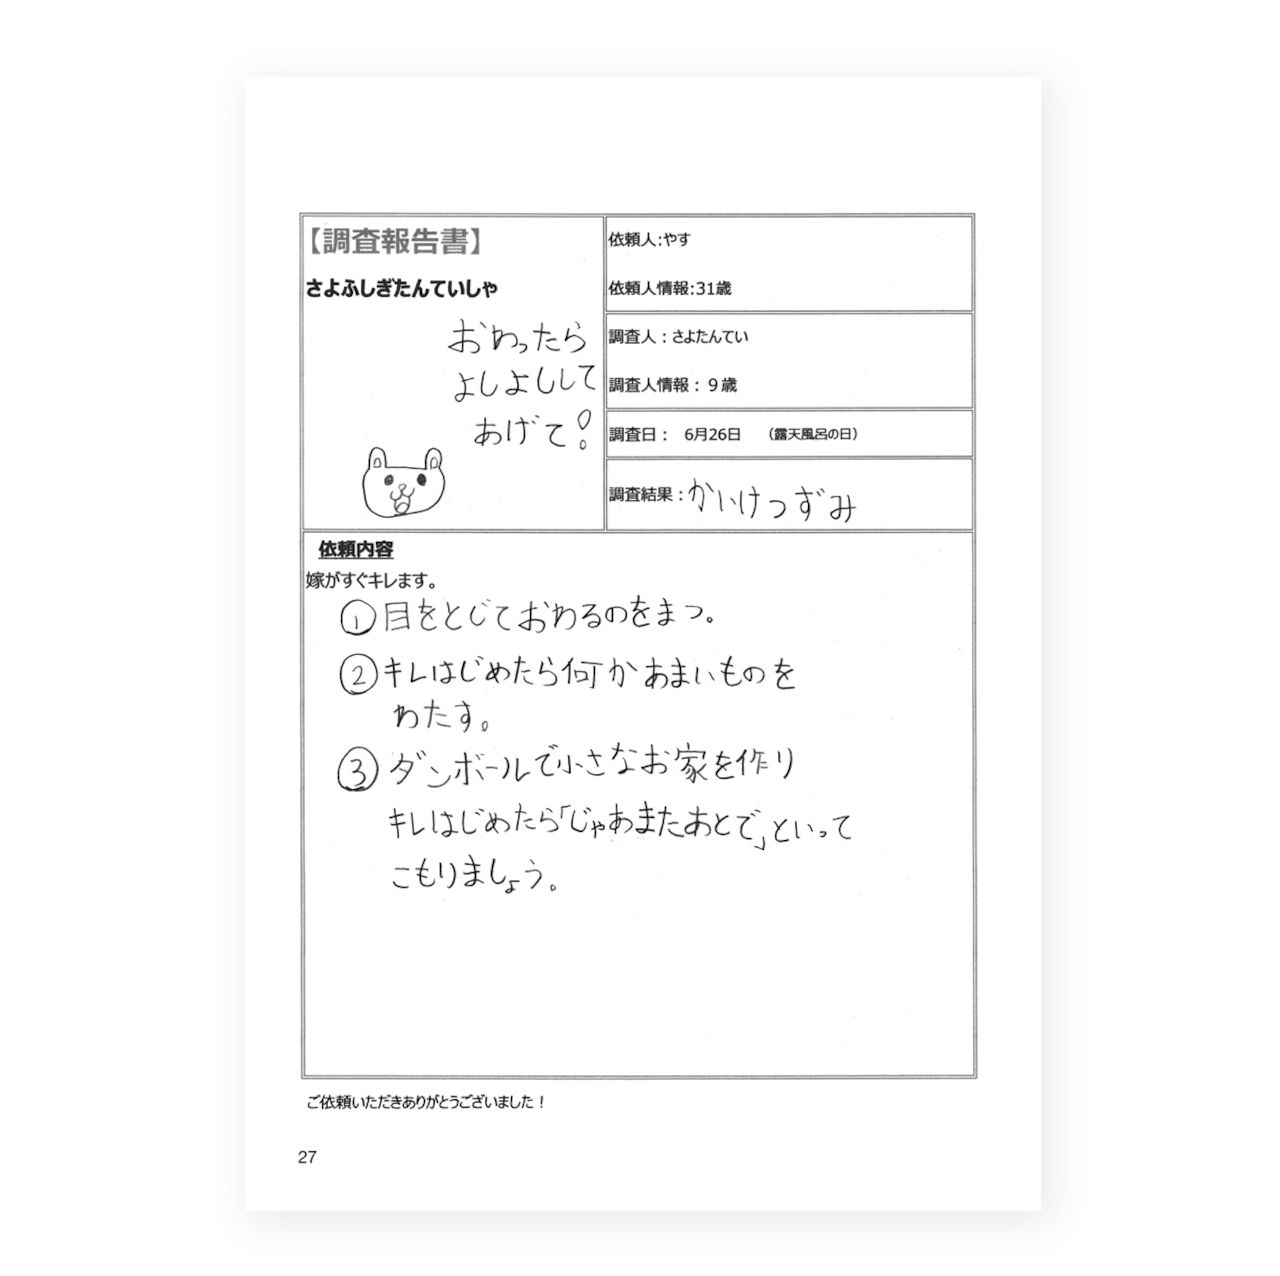 【調査報告書】
さよふしぎたんていしゃ
おわったら
よしよしして
あげて!
依頼人:やす
依頼人情報:31歳
調査人：さよたんてい
調査人情報：９歳
調査日：　6月26日　（露天風呂の日）
調査結果：かいけつずみ
依頼内容
嫁がすぐキレます。
①目をとじておわるのをまつ。
②キレはじめたら何かあまいものを
わたす。
③ダンボールで小さなお家を作り
キレはじめたら「じゃあまたあとで」といって
こもりましょう。
ご依頼いただきありがとうございました！
27